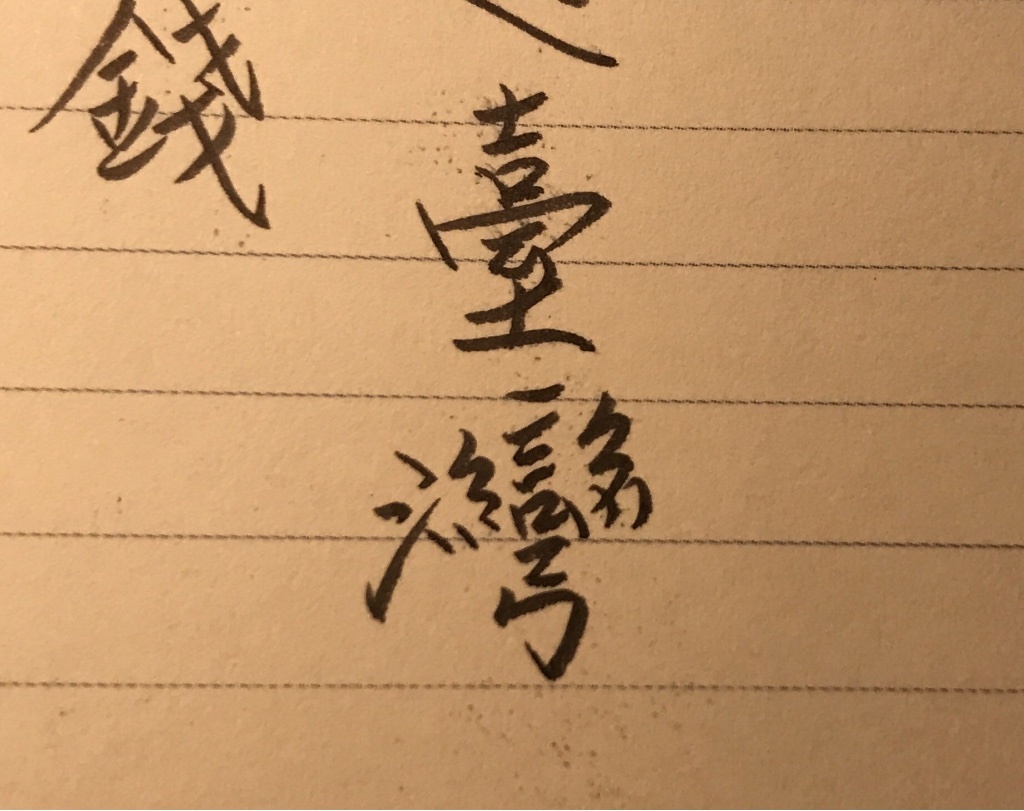 臺灣
錢